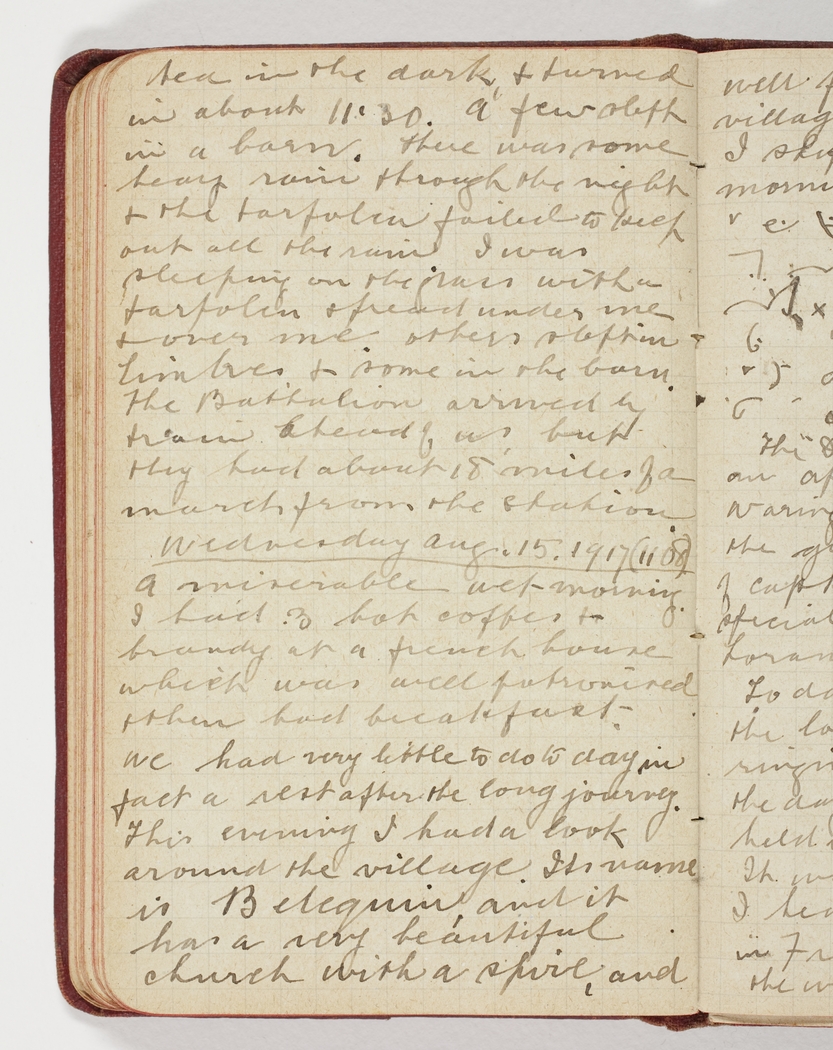 tea in the dark, & turned
in about 11.30. A few slept
in a barn. There was some
heavy rain through the night
& the tarpolin failed to keep
out all the rain I was
sleeping on the grass with a
tarpolin spread under me
& over me others slept in
limbres & some in the barn.
The Battalion arrived by
train ahead of us but
they had about 18 miles of a
march from the station
Wednesday Aug. 15. 1917 (1108)
A miserable wet morning.
I had 3 hot coffees &
brandy at a french house
which was well patronised
then had breakfast.
We had very little to do to day in
fact a rest after the long journey.
This evening I had a look
around the village Its name
is Belequin, and it
has a very beautiful
church with a spire, and
well
villag
I
morn
e.
7
x
6
5
6
The
an
warn
the
of capt
special
To da
the lo
ringin
the da
held
It w
I
in
the